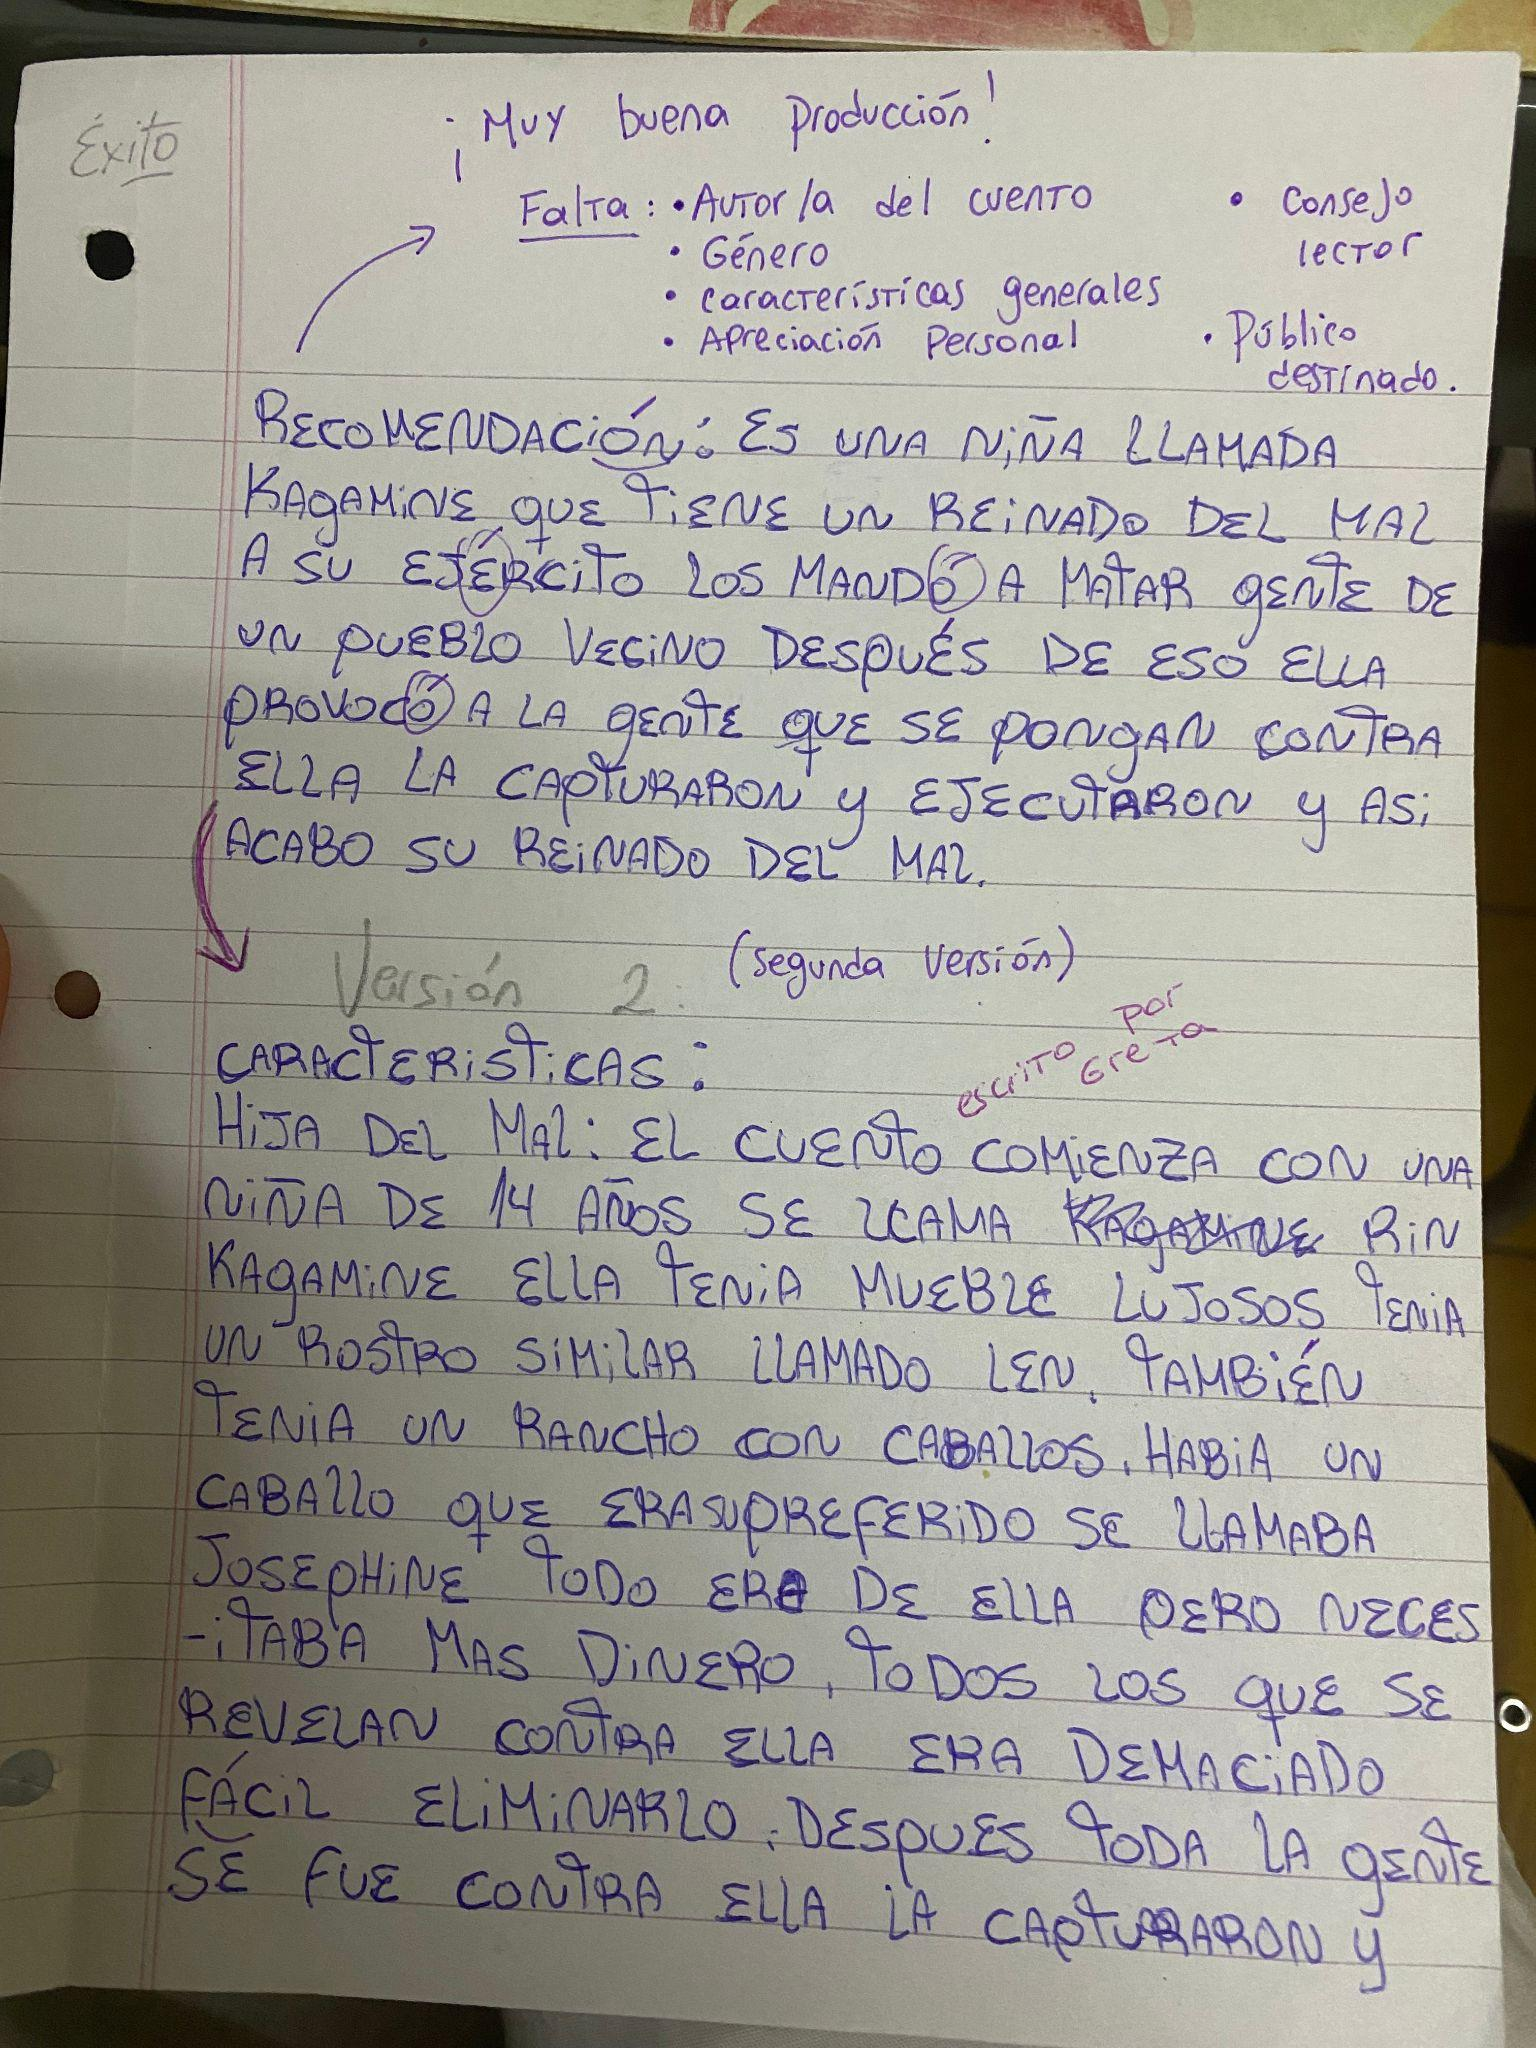 Éxito
¡Muy buena producción!
Falta: • Autor/a del cuento
• Género
• características generales
• Apreciación Personal
• Consejo
lector
• Público
destinado.
RECOMENDACIÓN: ES UNA NIÑA LLAMADA
KAGAMINE QUE TIENE UN REINADO DEL MAL
A SU EJÉRCITO LOS MANDÓ A MATAR GENTE DE
UN PUEBLO VECINO DESPUÉS DE ESO ELLA
PROVOCÓ A LA GENTE QUE SE PONGAN CONTRA
ELLA LA CAPTURARON Y EJECUTARON Y ASI
ACABO SU REINADO DEL MAL.
Versión 2: (segunda versión)
escrito por
Greta
CARACTERISTICAS:
HIJA DEL MAL: EL CUENTO COMIENZA CON UNA
NIÑA DE 14 AÑOS SE LLAMA KAGAMINE RIN
KAGAMINE ELLA TENIA MUEBLE LUJOSOS TENIA
UN ROSTRO SIMILAR LLAMADO LEN. TAMBIÉN
TENIA UN RANCHO CON CABALLOS. HABIA UN
CABALLO QUE ERASUPREFERIDO SE LLAMABA
JOSEPHINE TODO ERA DE ELLA PERO NECES
-ITABA MAS DINERO, TODOS LOS QUE SE
REVELAN CONTRA ELLA ERA DEMACIADO
FÁCIL ELIMINARLO. DESPUES TODA LA GENTE
SE FUE CONTRA ELLA LA CAPTURARON Y